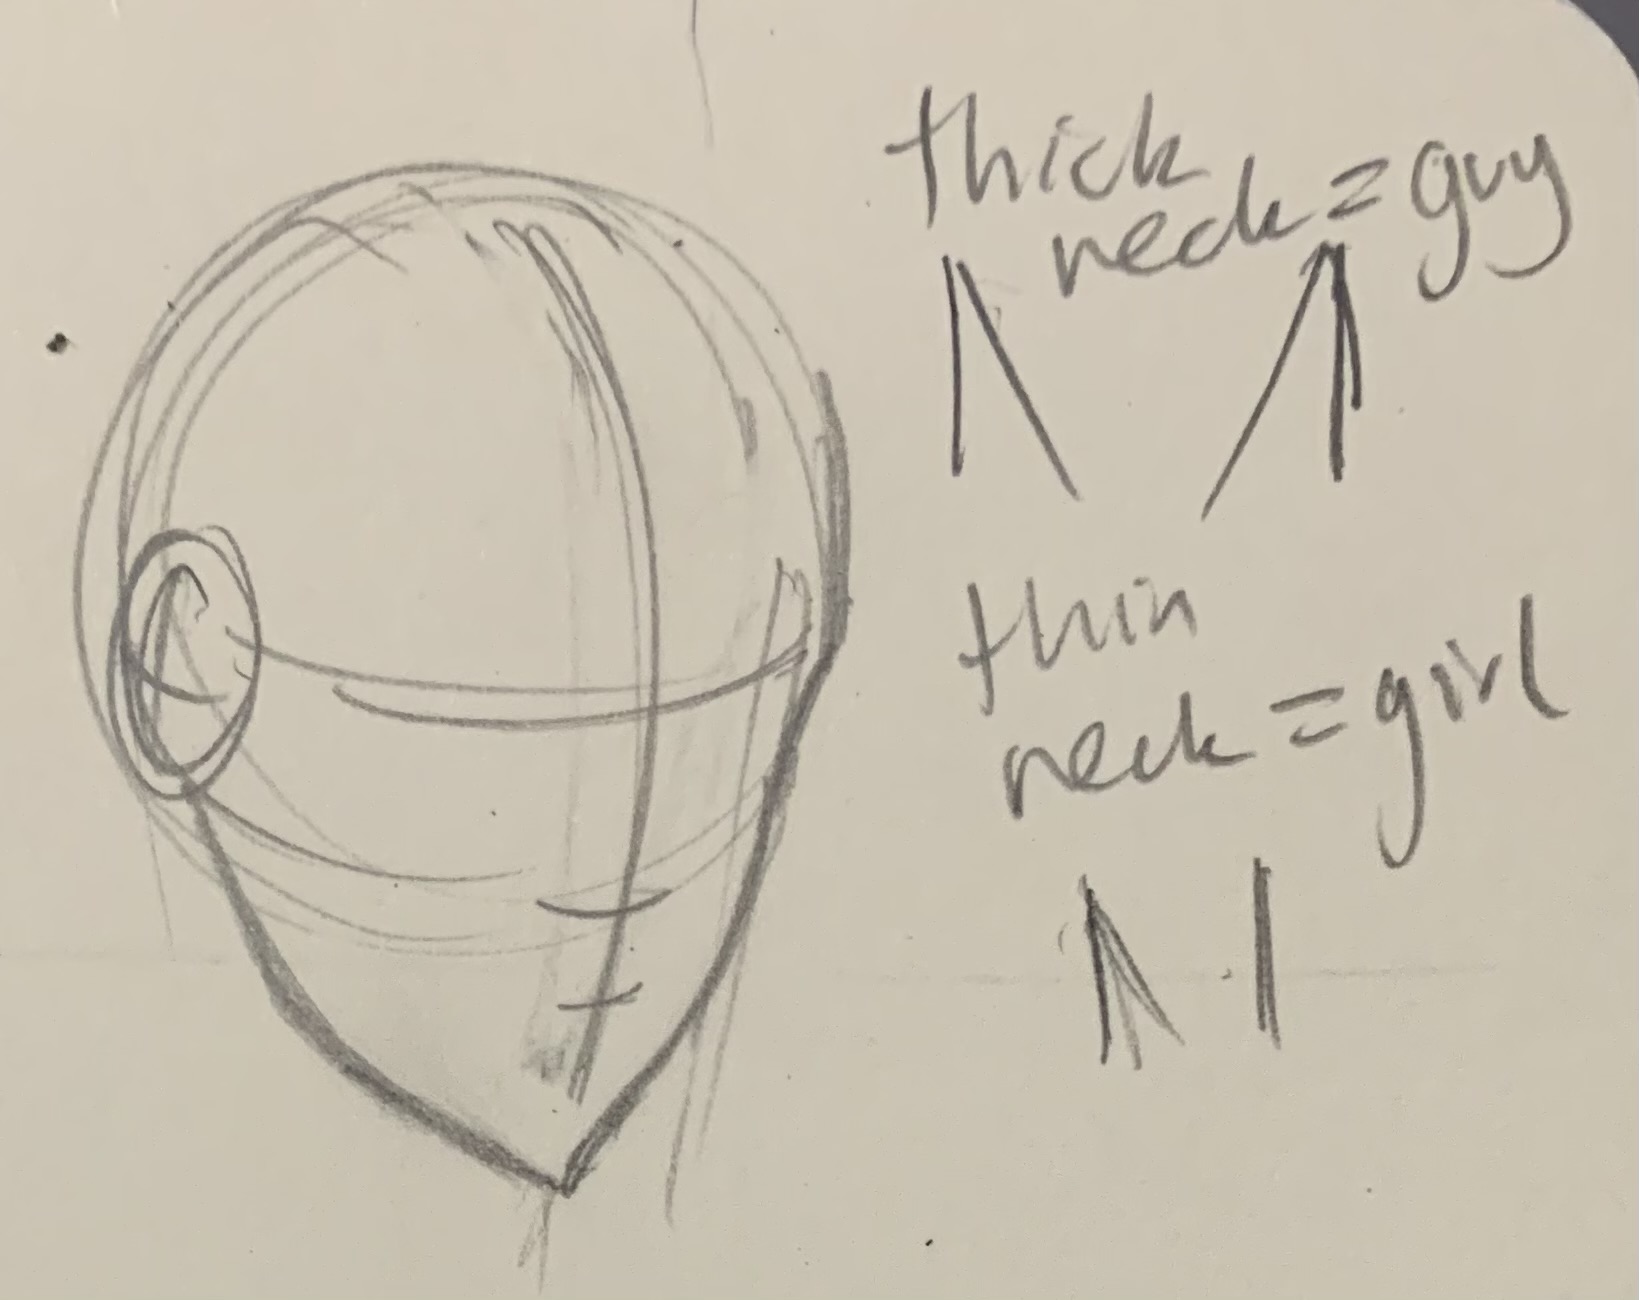 thick
neck = guy
thin
neck = girl